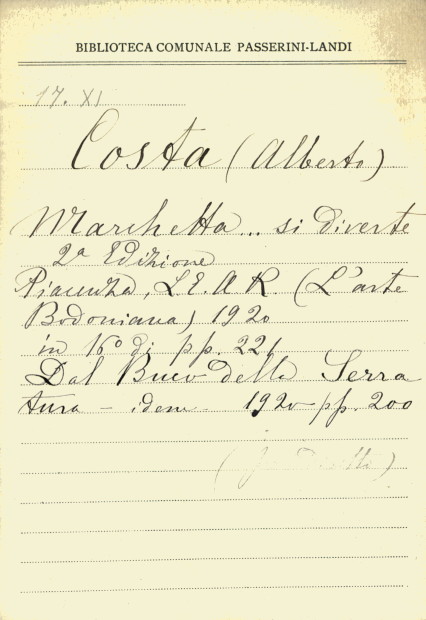 BIBLIOTECA COMUNALE PASSERINI-LANDI
17. XI
Costa (Alberto)
Marchetta... si diverte
2ª Edizione
Piacenza, L.E.A.R. (L'arte
Bodoniana) 1920
in 16º di pp. 221
Dal Buco della Serra
tura - idem - 1920 pp. 200